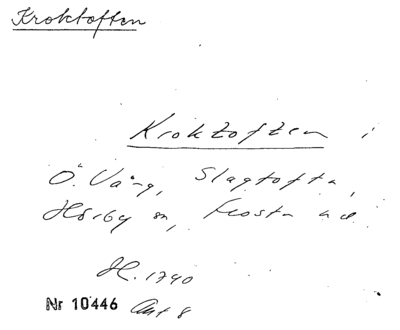 Kroktoften
Kroktoften i
Ö. Vång, Slagtofta,
Hörby sn, Frosta hd
H. 1740
Nr 10446 Akt 8